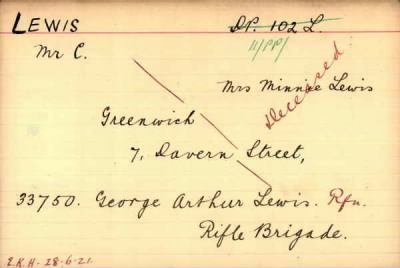 LEWIS DP. 102 L.
11/PP/
Mr C.
Mrs Minnie Lewis
Deceased
Greenwich
7, Davern Street,
33750. George Arthur Lewis. Rfn.
Rifle Brigade.
E.K.H. - 28-6-21.